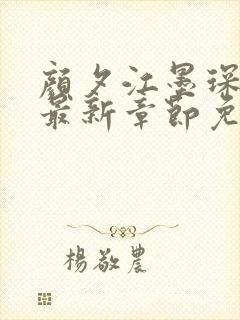 顔夕江墨琛
最新章節免
楊敬農